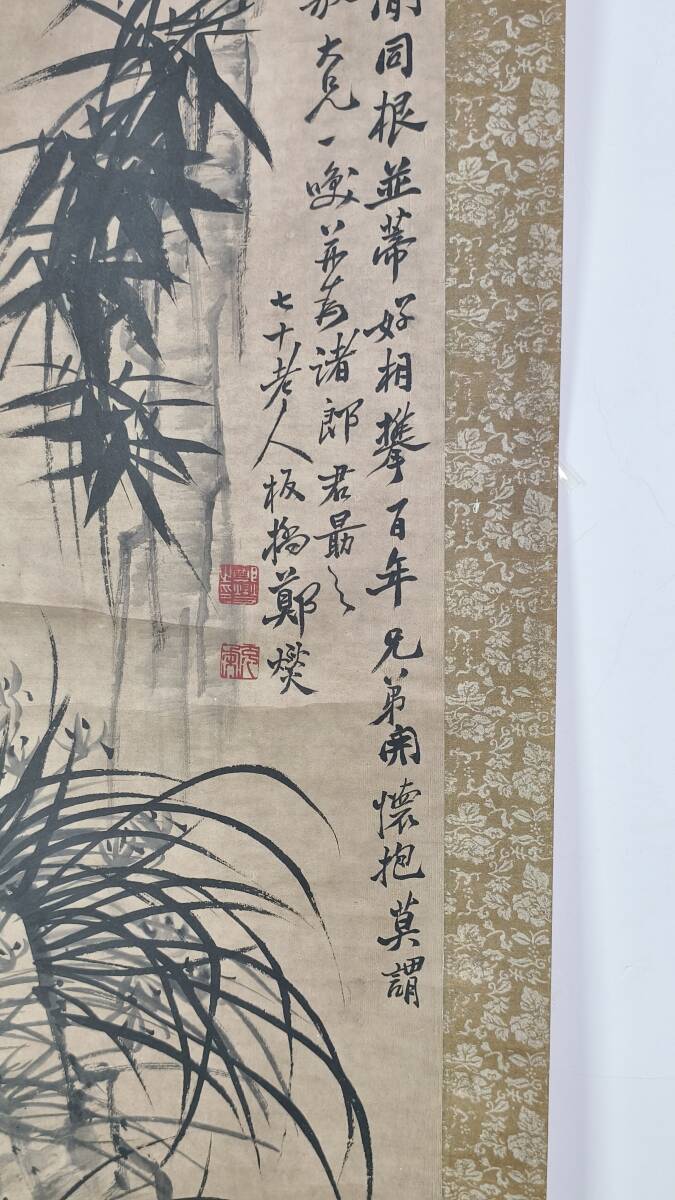 同根並蒂好相攀百年兄弟開懷抱莫謂
大兄一噱并尊諸郎君勗之
七十老人板橋鄭燮